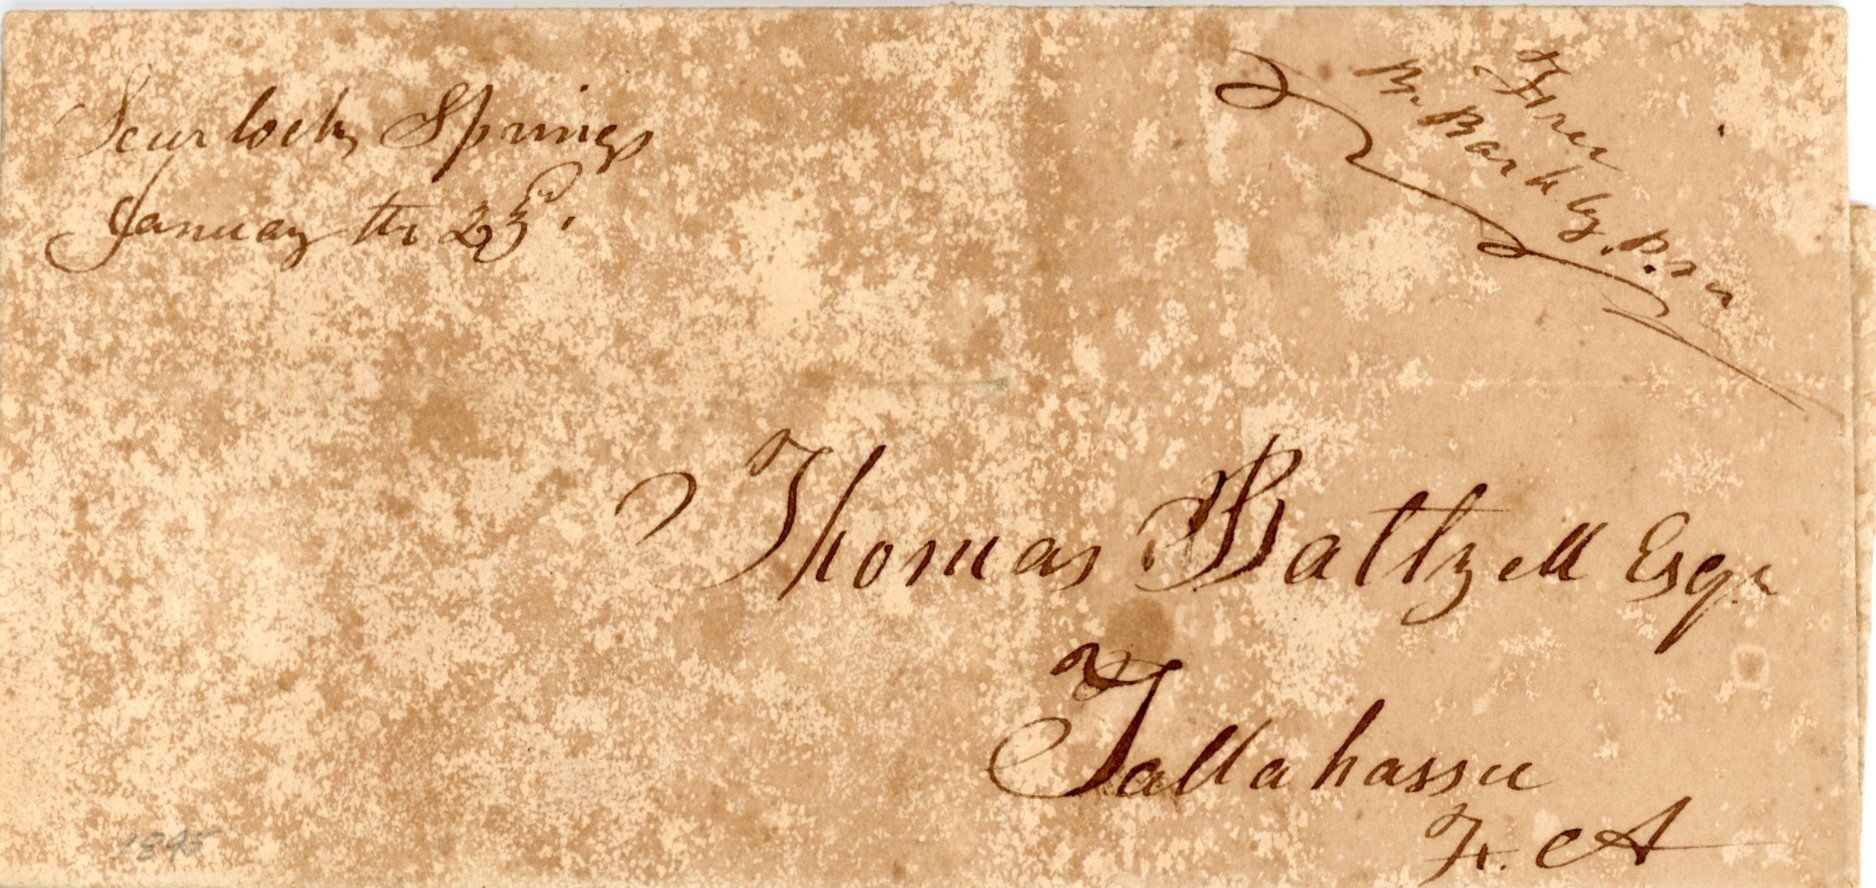 Scurlocks Springs
January the 23d.
Free
B. Barkley. P.M
Thomas Baltzell Esqr
Tallahassee
F. A
1845